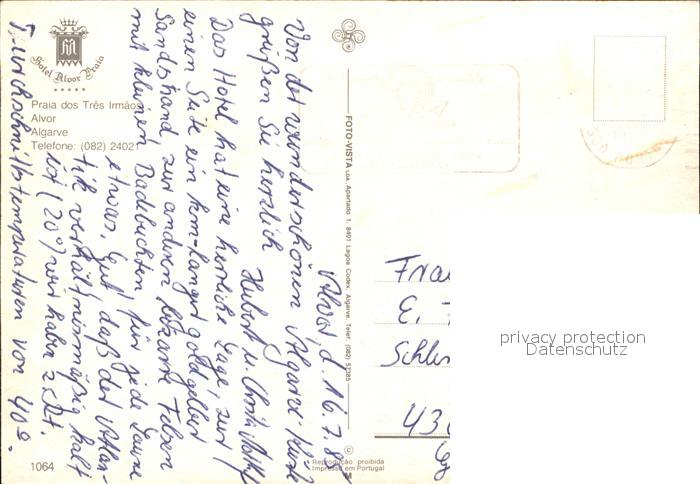 Hotel Alvor Praia
Praia dos Três Irmãos
Alvor
Algarve
Telefone: (082) 24021
Alvor, d. 16.7.
Von der wunderschönen Algarve-Küste
grüßen Sie herzlich
Hubert u.
Das Hotel hat eine herrliche Lage, zur
einen Seite ein km-langer goldgelber
Sandstrand zur anderen bizarre Felsen
mit kleinen Badebuchten für jede Laune
etwas. Gut, daß der Atlan-
tik verhältnismäßig kalt
ist (20°) wir haben z. Zt.
Durchschnittstemperaturen von 40°.
FOTO-VISTA LDA. Apartado 1, 8401 Lagoa Codex, Algarve, Telef. (082) 57385
Frau
E.
43
privacy protection
Datenschutz
1064
© Reprodução proibida
Impresso em Portugal
M